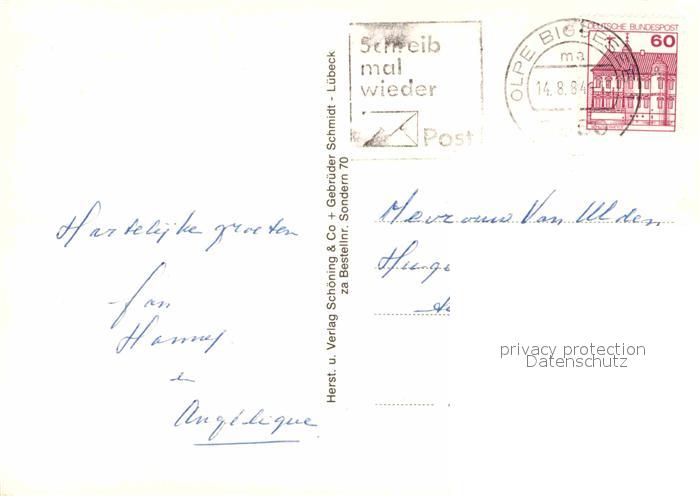 Schreib
mal
wieder
Post
OLPE BIGGESEE
ma
14.8.84
DEUTSCHE BUNDESPOST
60
Hartelijke groeten
Jan
Hannes
en
Angélique
Herst. u. Verlag Schöning & Co + Gebrüder Schmidt - Lübeck
za Bestellnr. Sondern 70
Mevrouw Van Ulden
privacy protection
Datenschutz